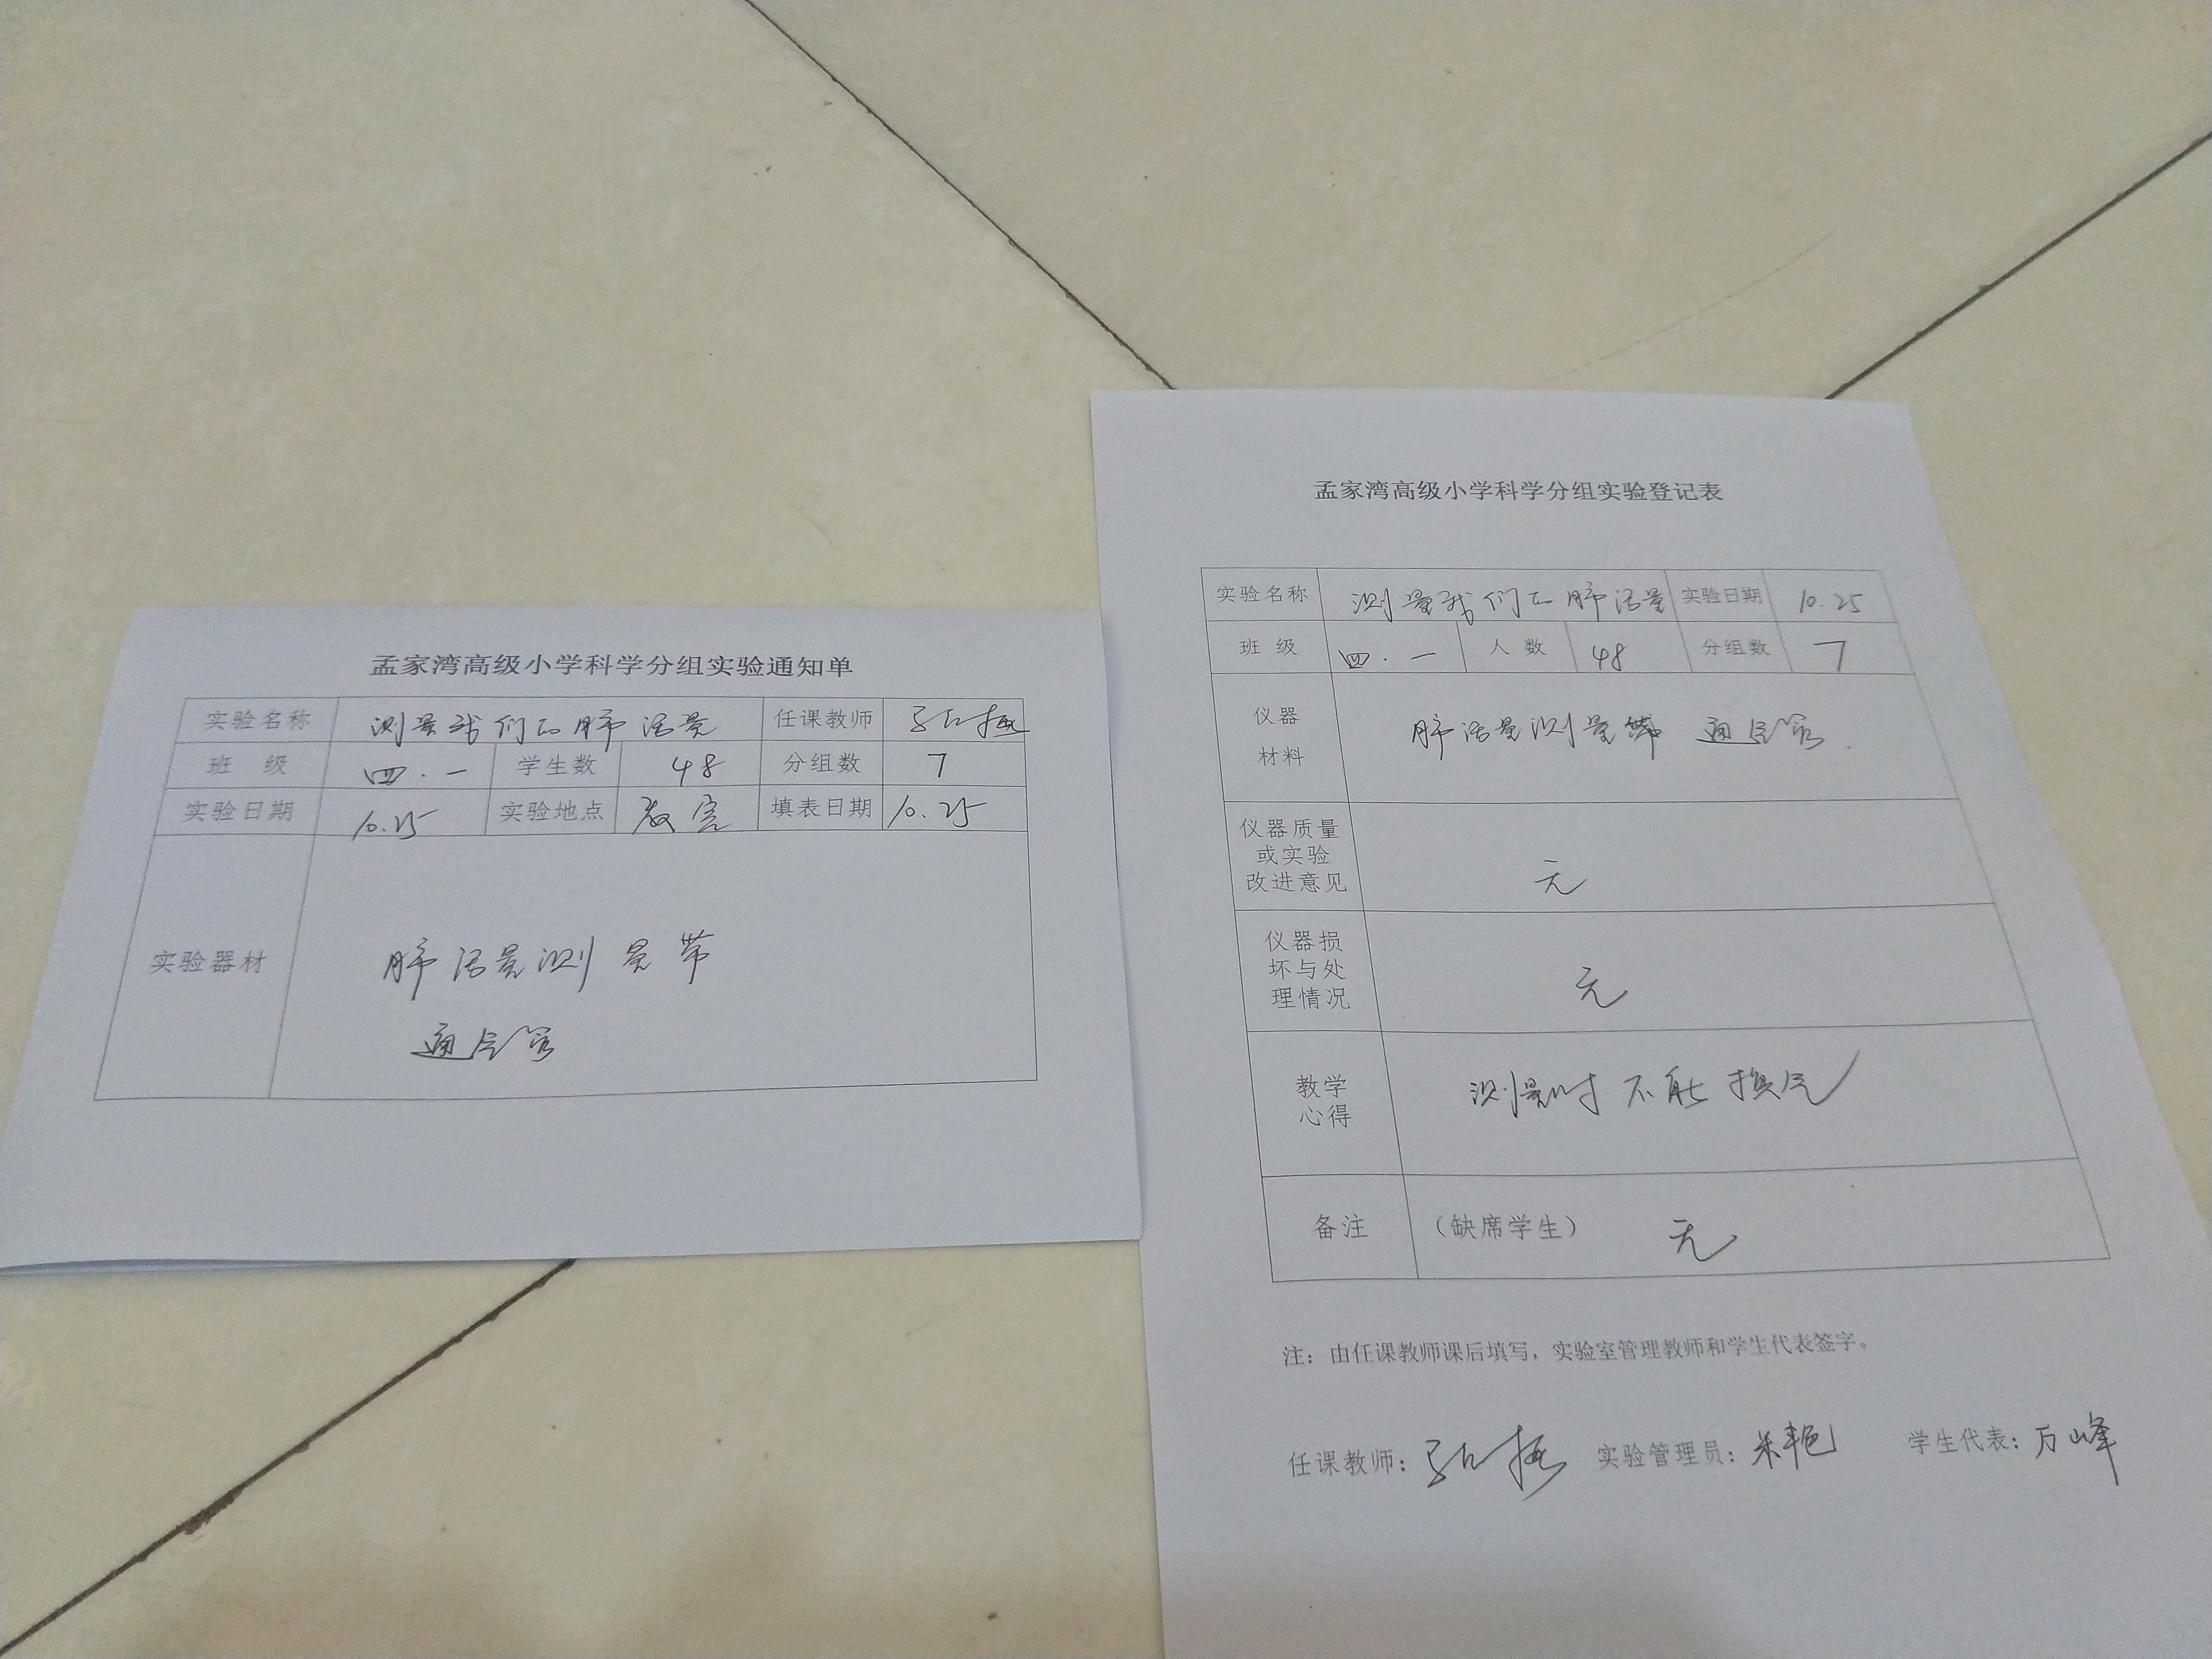 孟家湾高级小学科学分组实验通知单
实验名称 测量我们的肺活量 任课教师
班 级 四.一 学生数 48 分组数 7
实验日期 10.25 实验地点 教室 填表日期 10.25
实验器材 肺活量测量带
通气管
孟家湾高级小学科学分组实验登记表
实验名称 测量我们的肺活量 实验日期 10.25
班 级 四.一 人 数 48 分组数 7
仪器
材料
肺活量测量带 通气管
仪器质量
或实验
改进意见
无
仪器损
坏与处
理情况
无
教学
心得
测量时不能换气
备注 (缺席学生) 无
注：由任课教师课后填写，实验室管理教师和学生代表签字。
任课教师： 实验管理员：朱艳 学生代表：万峰